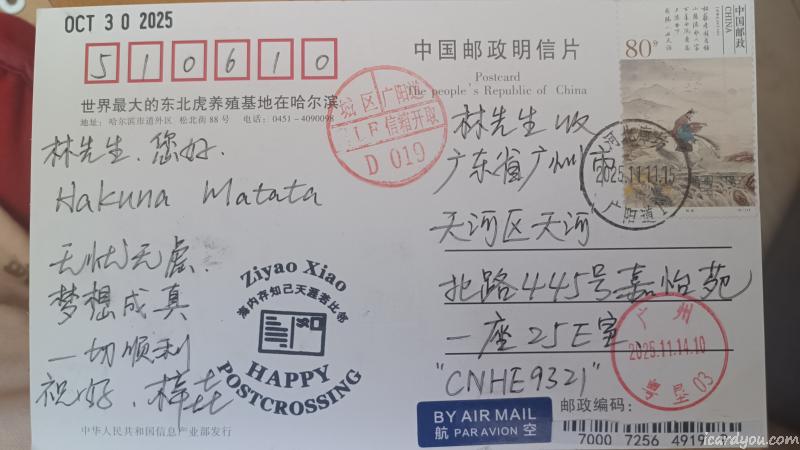 OCT 3 0 2025
510610
中国邮政明信片
Postcard
The people's Republic of China
世界最大的东北虎养殖基地在哈尔滨
地址：哈尔滨市道外区 松北街 88 号 电话：0451-4090098
林先生，您好，
Hakuna Matata
无忧无虑，
梦想成真
一切顺利
祝好，梓垚
林先生收
广东省广州市
天河区天河
北路445号嘉怡苑
一座25E室
"CNHE9321"
城区广阳道
信箱开取
D 019
80分
中国邮政
CHINA
2025.11.11.15
广阳道
Ziyao Xiao
海内存知己天涯若比邻
HAPPY
POSTCROSSING
广州
2025.11.14.10
03
BY AIR MAIL
航 PAR AVION 空
邮政编码：
7000 7256 491
中华人民共和国信息产业部发行
icardyou.com